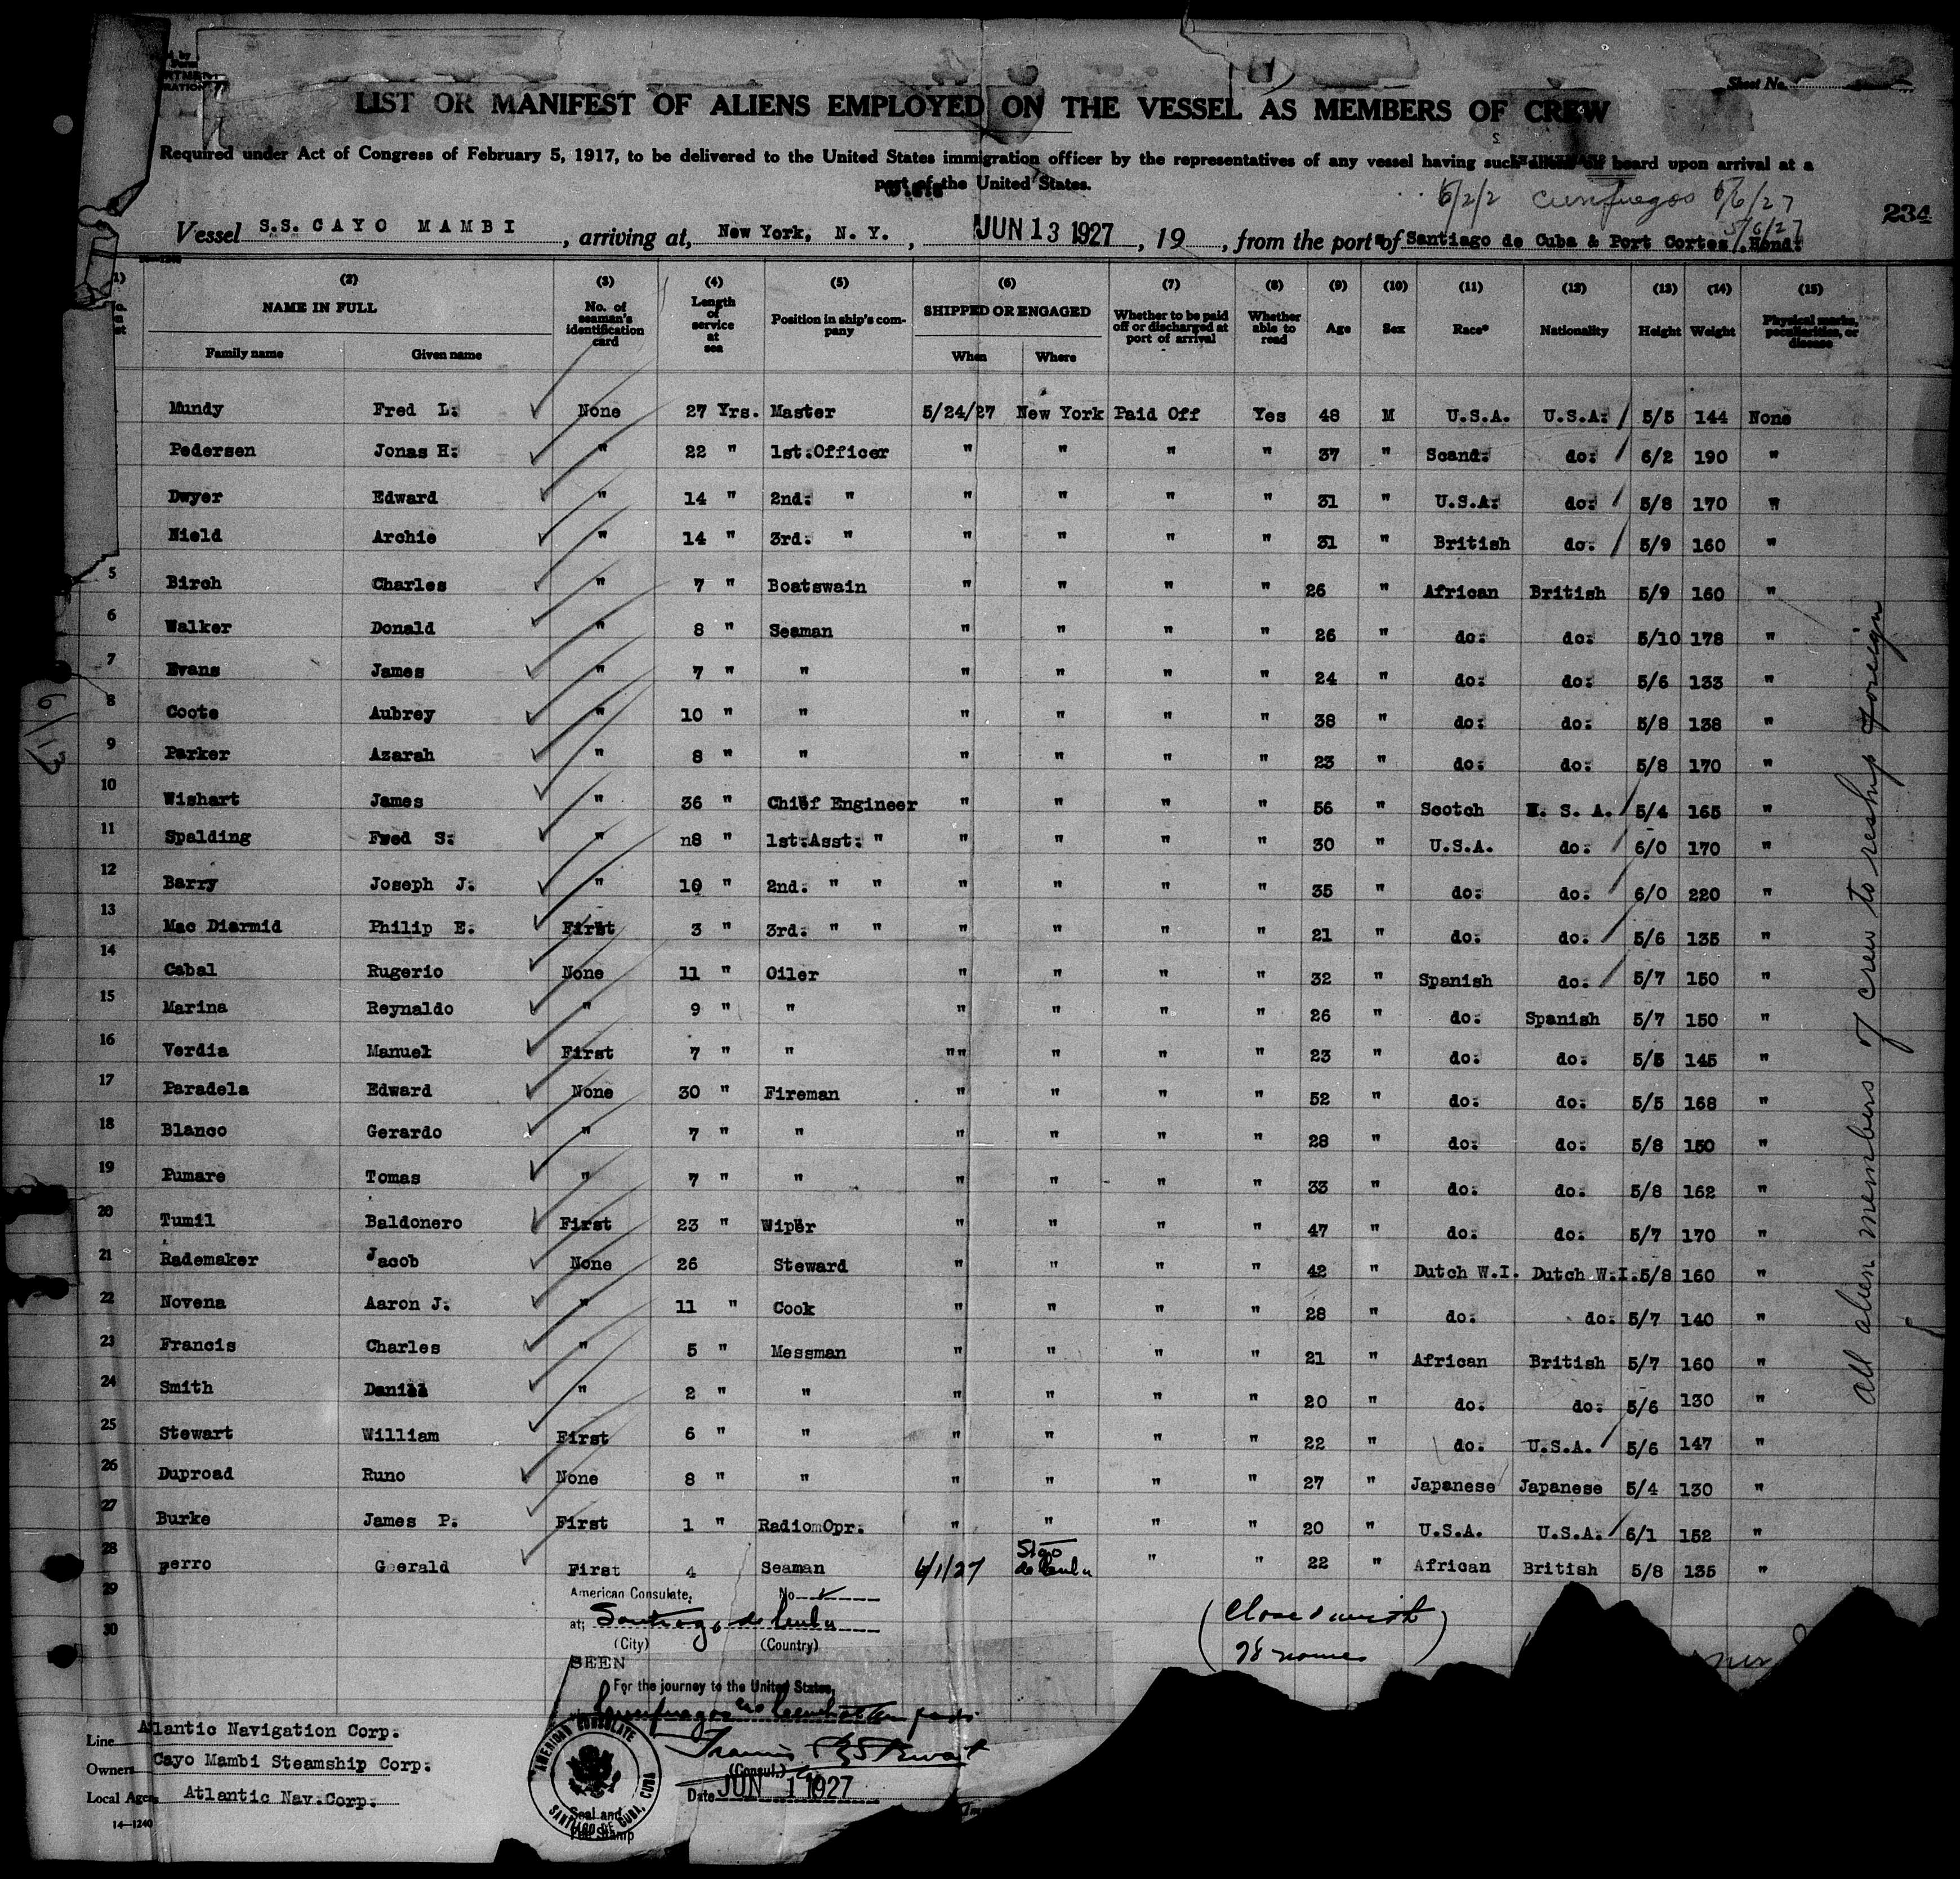 Sheet No.
LIST OR MANIFEST OF ALIENS EMPLOYED ON THE VESSEL AS MEMBERS OF CREW
Required under Act of Congress of February 5, 1917, to be delivered to the United States immigration officer by the representatives of any vessel having such aliens on board upon arrival at a
port of the United States.
6/2/2 Cienfuegos 6/6/27
5/6/27
234
Vessel S.S. CAYO MAMBI, arriving at, New York, N. Y., JUN 13 1927, 19, from the ports of Santiago de Cuba & Port Cortes, Hond.
(2) (3) (4) (5) (6) (7) (8) (9) (10) (11) (12) (13) (14) (15)
NAME IN FULL Family name Given name No. of seaman's identification card Length of service at sea Position in ship's company SHIPPED OR ENGAGED When Where Whether to be paid off or discharged at port of arrival Whether able to read Age Sex Race* Nationality Height Weight Physical marks, peculiarities, or disease
Mundy Fred L. None 27 Yrs. Master 5/24/27 New York Paid Off Yes 48 M U.S.A. U.S.A. 5/5 144 None
Pedersen Jonas H. " 22 " 1st.Officer " " " " 37 " Scand. do. 6/2 190 "
Dwyer Edward " 14 " 2nd. " " " " " 31 " U.S.A. do. 5/8 170 "
Nield Archie " 14 " 3rd. " " " " " 31 " British do. 5/9 160 "
5 Birch Charles " 7 " Boatswain " " " " 26 " African British 5/9 160 "
6 Walker Donald " 8 " Seaman " " " " 26 " do. do. 5/10 178 "
7 Evans James " 7 " " " " " " 24 " do. do. 5/6 133 "
8 Coote Aubrey " 10 " " " " " " 38 " do. do. 5/8 138 "
9 Parker Azarah " 8 " " " " " " 23 " do. do. 5/8 170 "
10 Wishart James " 36 " Chief Engineer " " " " 56 " Scotch U. S. A. 5/4 165 "
11 Spalding Fred S. " n8 " 1st.Asst. " " " " " 30 " U.S.A. do. 6/0 170 "
12 Barry Joseph J. " 10 " 2nd. " " " " " " 35 " do. do. 6/0 220 "
13 Mac Diarmid Philip E. First 3 " 3rd. " " " " " " 21 " do. do. 5/6 135 "
14 Cabal Rugerio None 11 " Oiler " " " " 32 " Spanish do. 5/7 150 "
15 Marina Reynaldo " 9 " " " " " " 26 " do. Spanish 5/7 150 "
16 Verdia Manuel First 7 " " "" " " " 23 " do. do. 5/5 145 "
17 Paradela Edward None 30 " Fireman " " " " 52 " do. do. 5/5 168 "
18 Blanco Gerardo " 7 " " " " " " 28 " do. do. 5/8 150 "
19 Pumare Tomas " 7 " " " " " " 33 " do. do. 5/8 162 "
20 Tumil Baldonero First 23 " Wiper " " " " 47 " do. do. 5/7 170 "
21 Rademaker Jacob None 26 Steward " " " " 42 " Dutch W.I. Dutch W.I. 5/8 160 "
22 Novena Aaron J. " 11 " Cook " " " " 28 " do. do. 5/7 140 "
23 Francis Charles " 5 " Messman " " " " 21 " African British 5/7 160 "
24 Smith Daniel " 2 " " " " " " 20 " do. do. 5/6 130 "
25 Stewart William First 6 " " " " " " 22 " do. U.S.A. 5/6 147 "
26 Duproad Runo None 8 " " " " " " 27 " Japanese Japanese 5/4 130 "
27 Burke James P. First 1 " RadiomOpr. " " " " 20 " U.S.A. U.S.A. 6/1 152 "
28 Ferro Goerald First 4 Seaman 6/1/27 Stgo de Cuba " " 22 " African British 5/8 135 "
29
30
All alien members of crew to reship foreign
American Consulate, No
at; Santiago de Cuba
(City) (Country)
SEEN
For the journey to the United States,
(Closed with
28 names)
(Consul.)
Date JUN 1 1927
AMERICAN CONSULATE
SANTIAGO DE CUBA, CUBA
Seal and
Fee Stamp
Line Atlantic Navigation Corp.
Owners Cayo Mambi Steamship Corp.
Local Agents Atlantic Nav.Corp.
14—1240